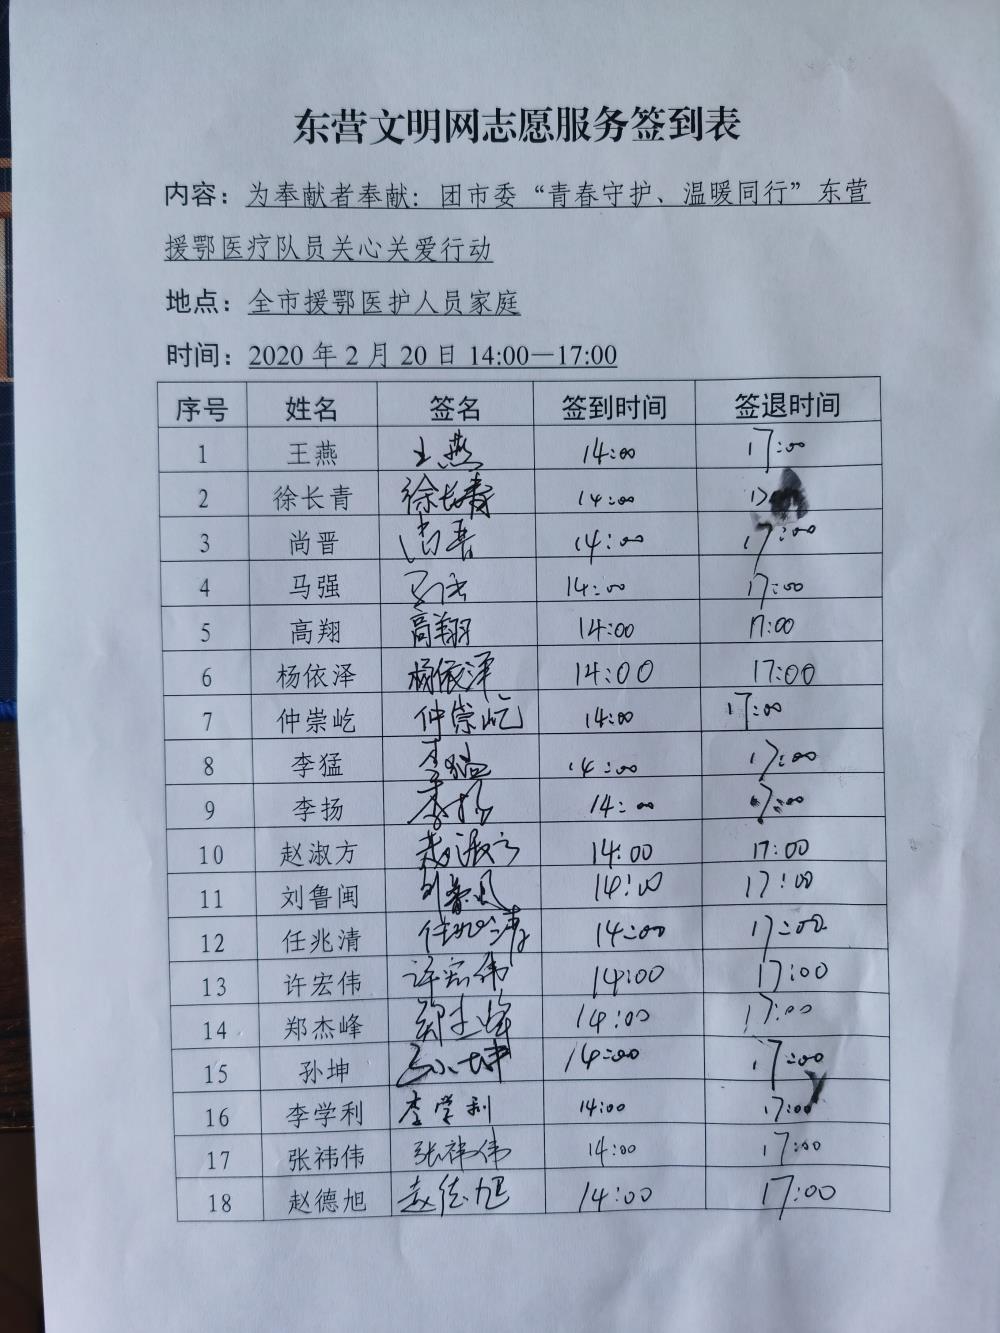 东营文明网志愿服务签到表
内容：为奉献者奉献：团市委“青春守护、温暖同行”东营
援鄂医疗队员关心关爱行动
地点：全市援鄂医护人员家庭
时间：2020 年 2 月 20 日 14:00—17:00
序号 姓名 签名 签到时间 签退时间
1 王燕 王燕 14:00 17:00
2 徐长青 徐长青 14:00
3 尚晋 尚晋 14:00 17:00
4 马强 马强 14:00 17:00
5 高翔 高翔 14:00 17:00
6 杨依泽 杨依泽 14:00 17:00
7 仲崇屹 仲崇屹 14:00 17:00
8 李猛 李猛 14:00 17:00
9 李扬 李扬 14:00 17:00
10 赵淑方 赵淑方 14:00 17:00
11 刘鲁闽 刘鲁闽 14:00 17:00
12 任兆清 任兆清 14:00 17:00
13 许宏伟 许宏伟 14:00 17:00
14 郑杰峰 郑杰峰 14:00 17:00
15 孙坤 孙坤 14:00 17:00
16 李学利 李学利 14:00 17:00
17 张祎伟 张祎伟 14:00 17:00
18 赵德旭 赵德旭 14:00 17:00